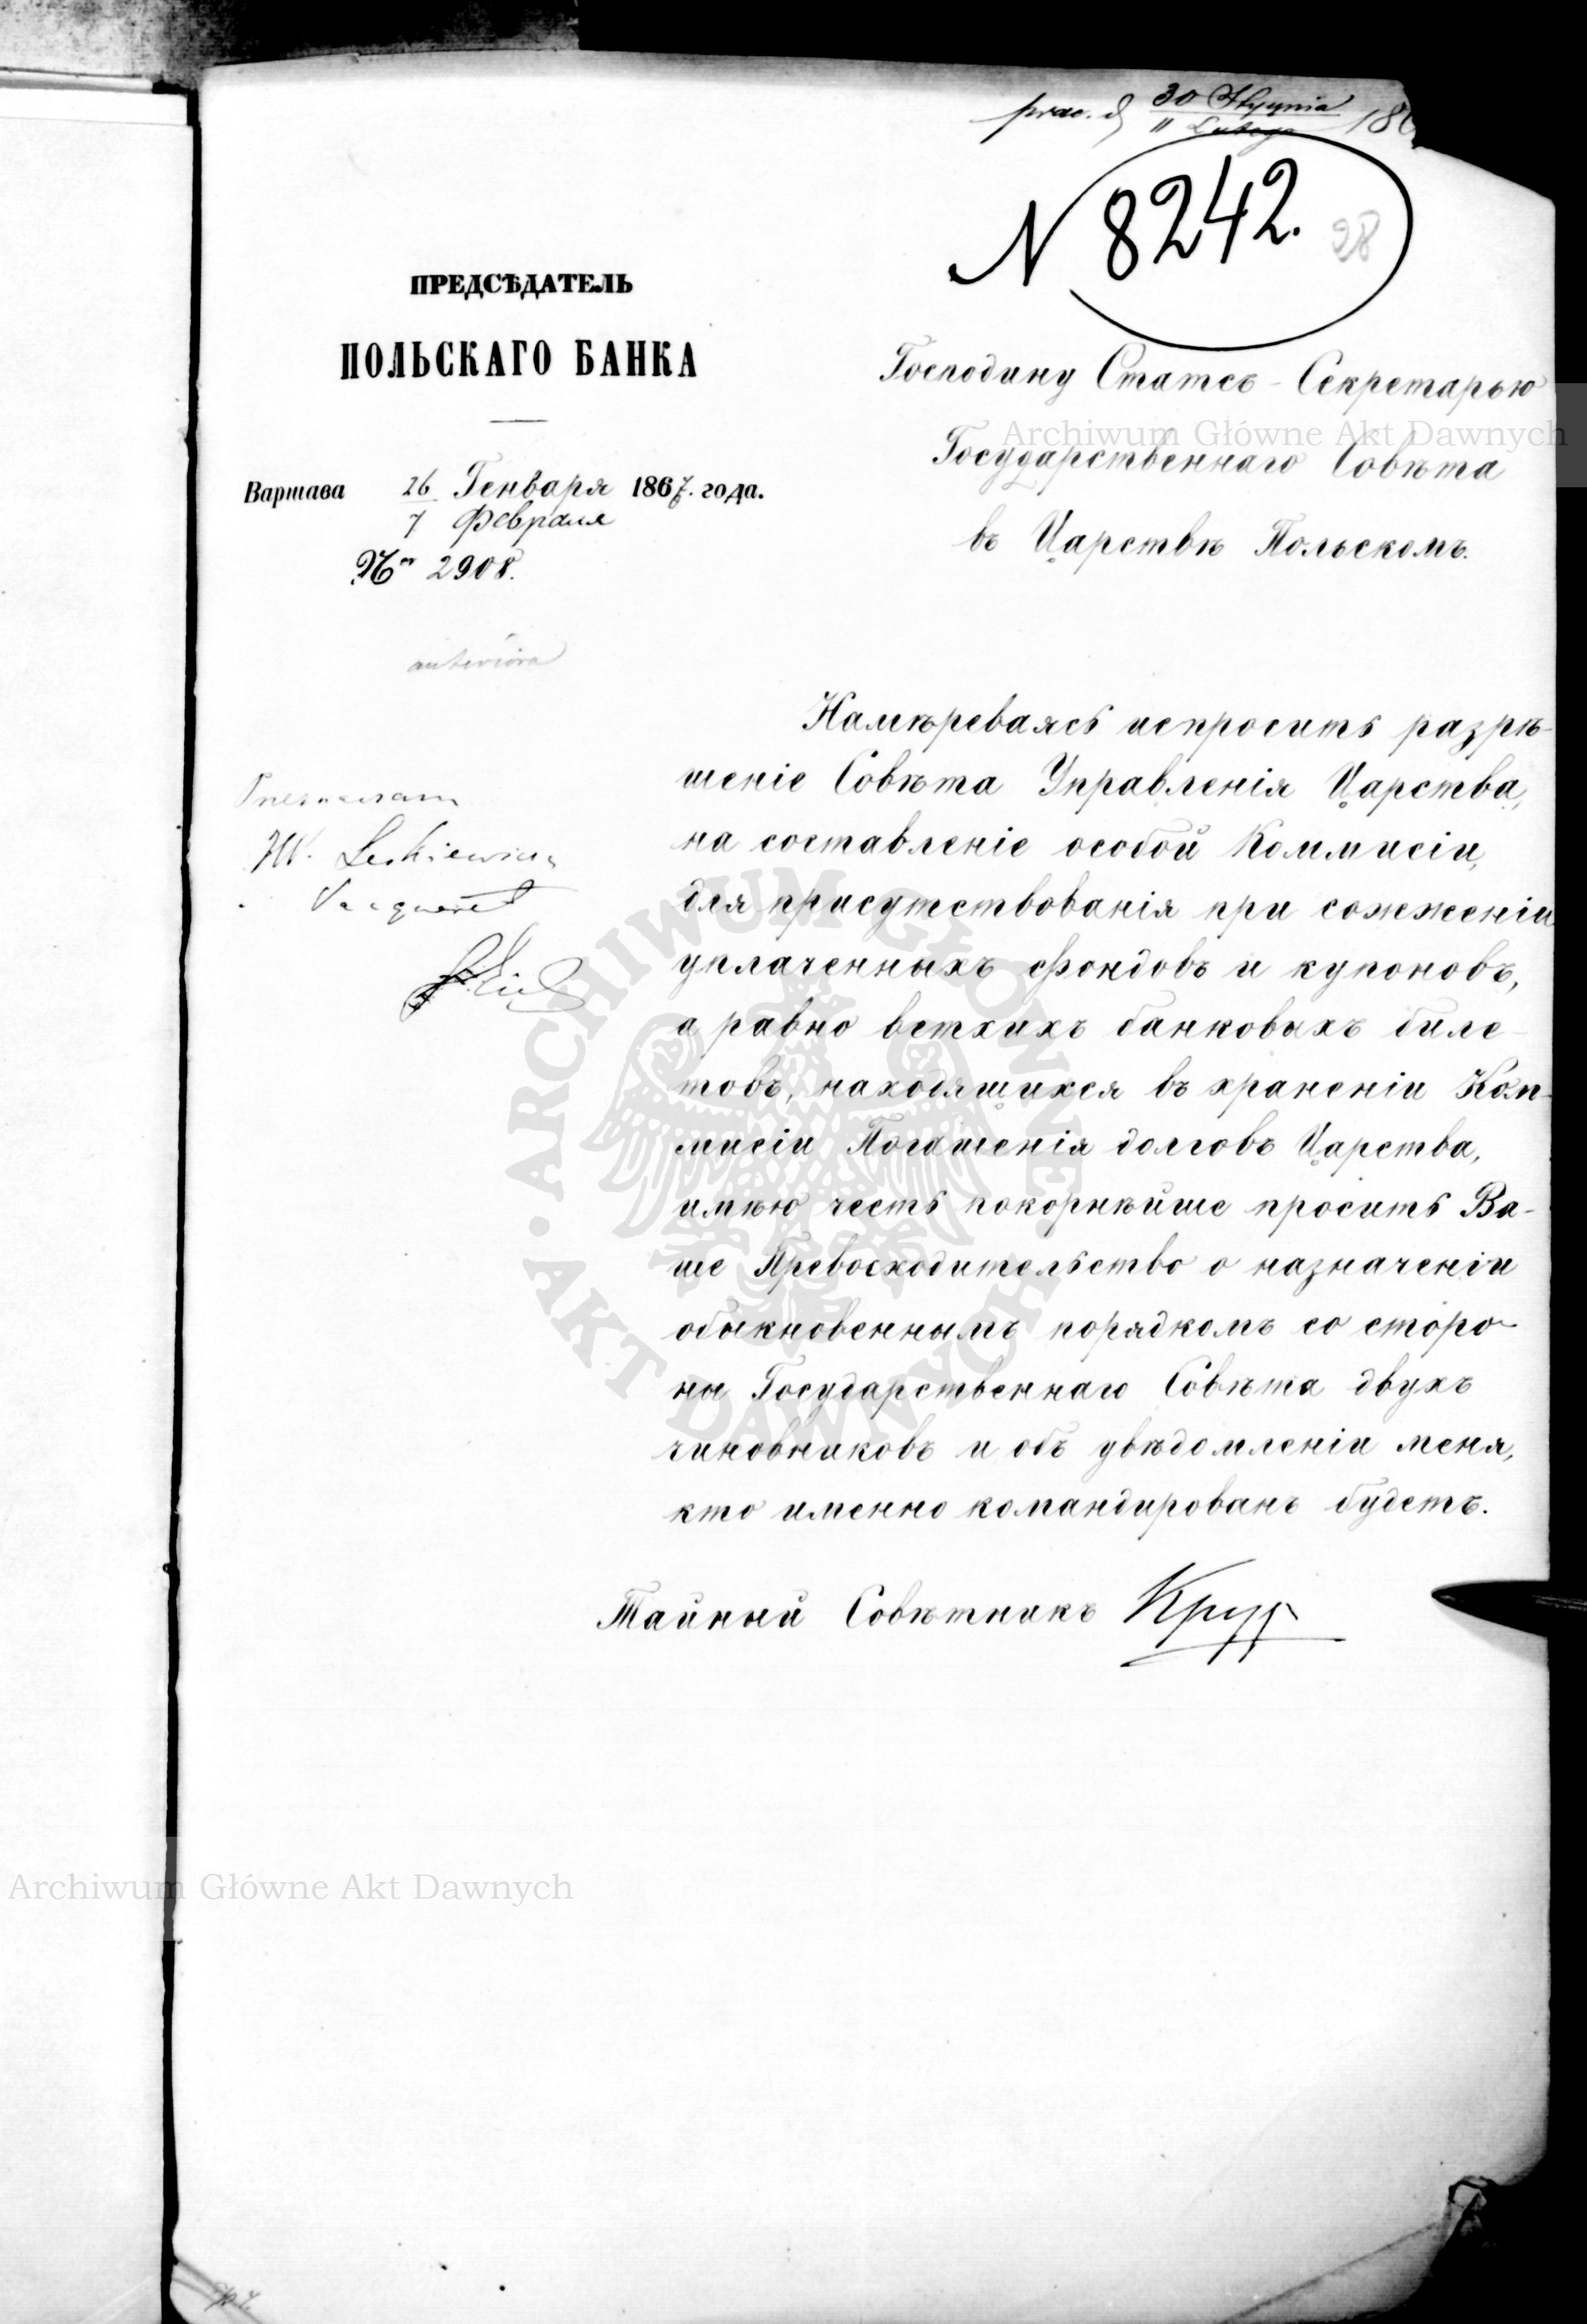 30 Stycznia
11 Lutego 186
N 8242.
28
ПРЕДСѢДАТЕЛЬ
ПОЛЬСКАГО БАНКА
Варшава 26 Генваря 1867. года.
7 Февраля
№ 2908.
Господину Статсъ-Секретарью
Государственнаго Совѣта
въ Царствѣ Польскомъ.
anteriora
Намѣреваясь испросить разрѣ-
шеніе Совѣта Управленія Царства,
на составленіе особой Коммисіи,
для присутствованія при сожженіи
уплаченныхъ фондовъ и купоновъ,
а равно ветхихъ банковыхъ биле-
товъ, находящихся въ храненіи Ком-
мисіи Погашенія долговъ Царства,
имѣю честь покорнѣйше просить Ва-
ше Превосходительство о назначеніи
обыкновеннымъ порядкомъ со сторо-
ны Государственнаго Совѣта двухъ
чиновниковъ и объ увѣдомленіи меня,
кто именно командированъ будетъ.
Тайный Совѣтникъ Крузе
Archiwum Główne Akt Dawnych
ARCHIWUM GŁÓWNE AKT DAWNYCH
Archiwum Główne Akt Dawnych